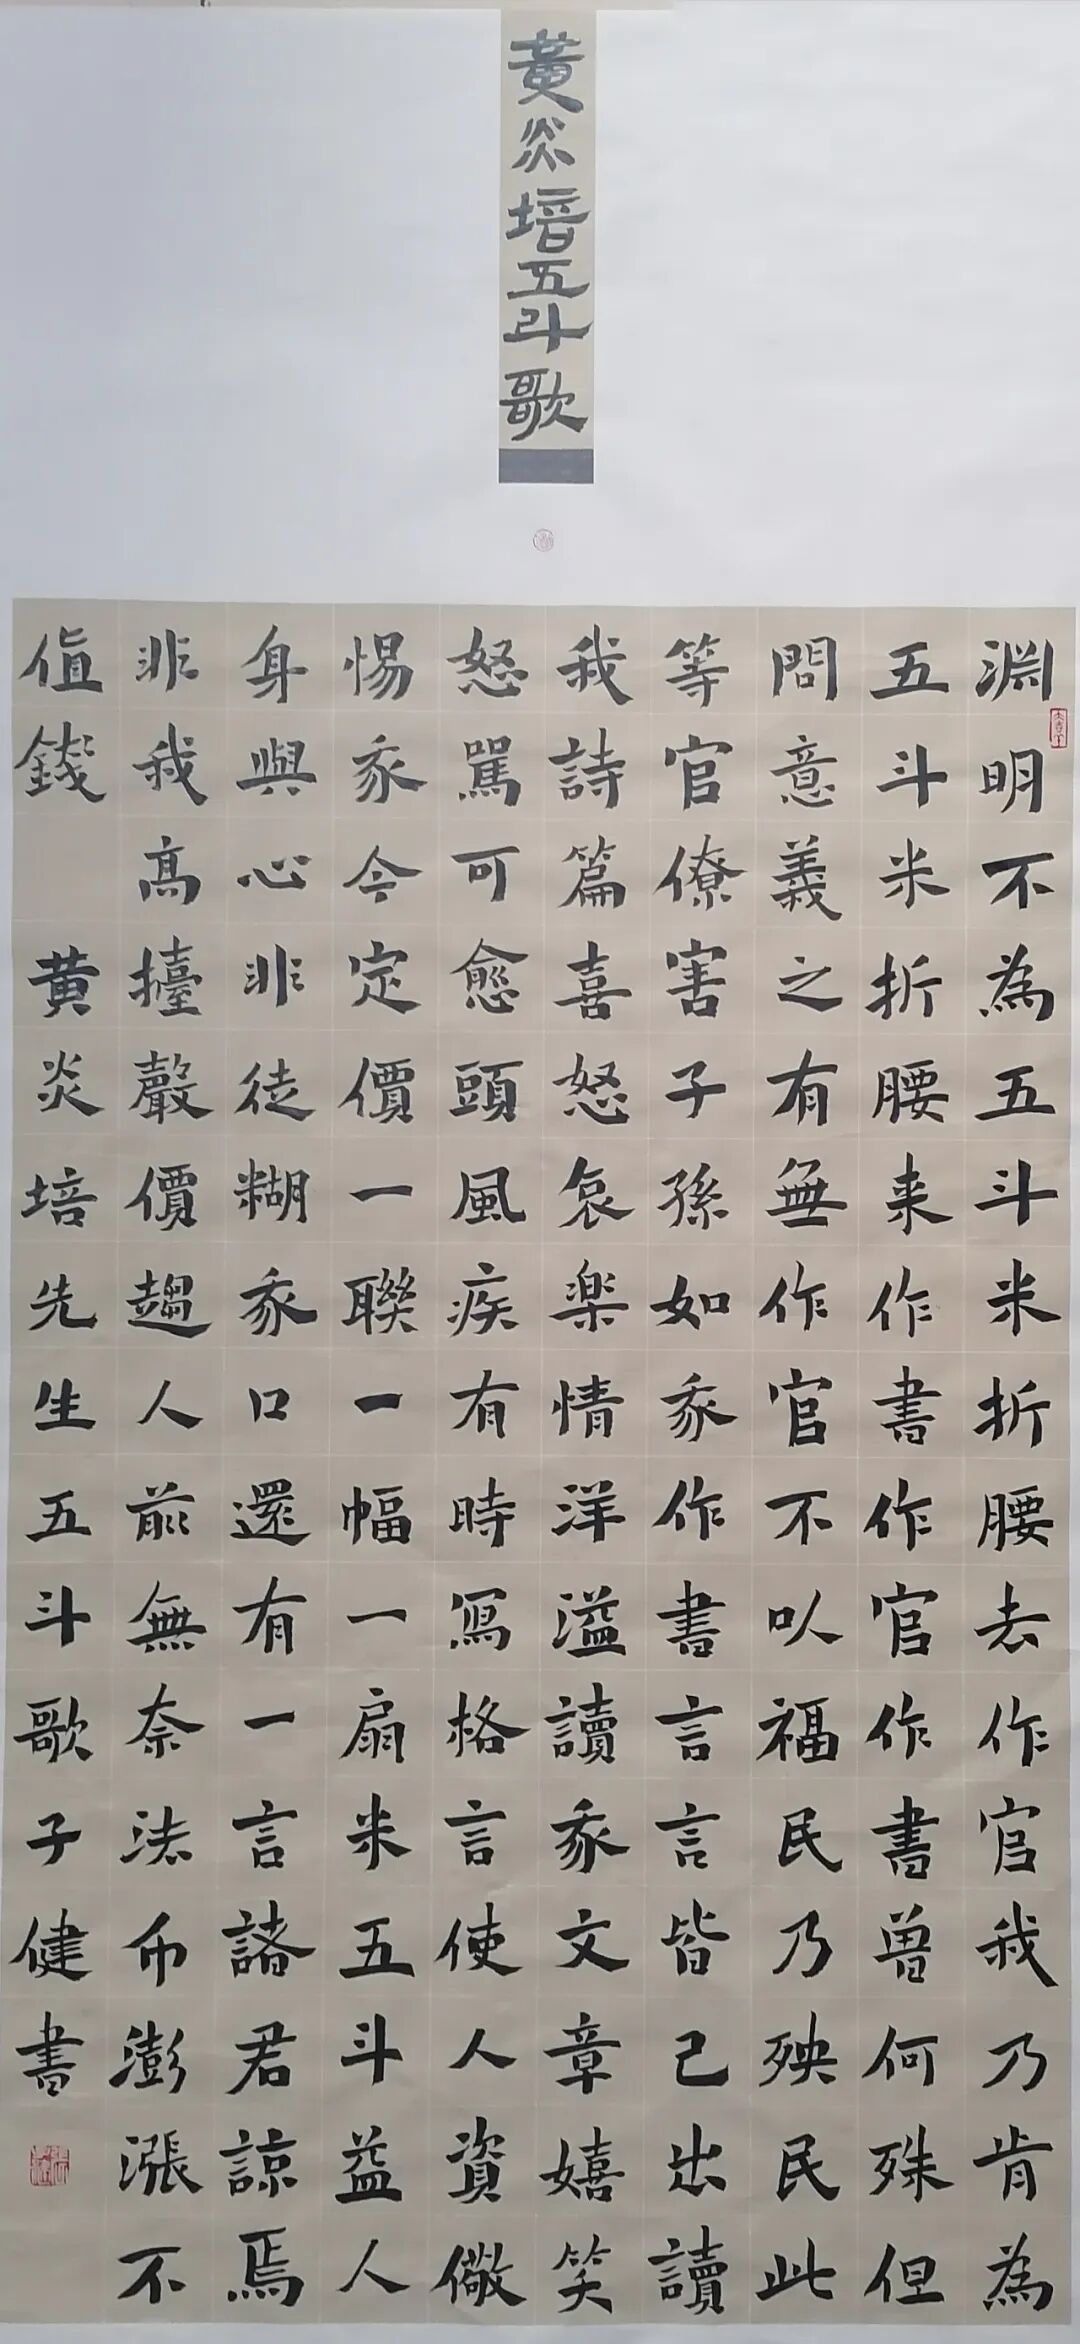 黄炎培五斗歌
渊明不為五斗米折腰去作官我乃肯為
五斗米折腰来作書作官作書曾何殊但
問意義之有無作官不以福民乃殃民此
等官僚害子孫如我作書言言皆己出讀
我詩篇喜怒哀楽情洋溢讀我文章嬉笑
怒駡可愈頭風疾有時寫格言使人資儆
惕我今定價一聯一幅一扇米五斗益人
身與心非徒糊我口還有一言諸君諒焉
非我高擡聲價趨人前無奈法币澎漲不
值錢 黄炎培先生五斗歌子健書